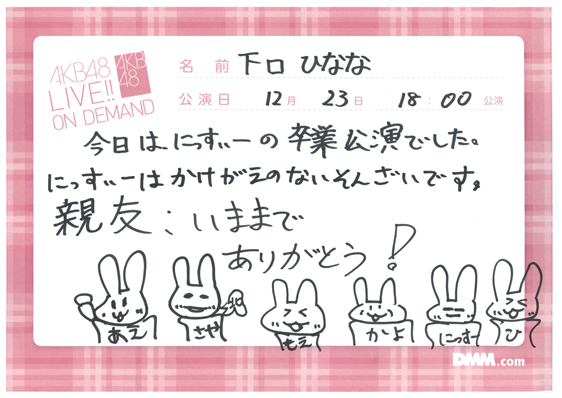 AKB48
LIVE!!
ON DEMAND
AKB
48
名 前 下口 ひなな
公演日 12月 23日 18:00 公演
今日は、にっすぃーの卒業公演でした。
にっすぃーはかけがえのないそんざいです。
親友:いままで
ありがとう!
あえ
さや
もえ
かよ
にっすー
ひ
DMM.com